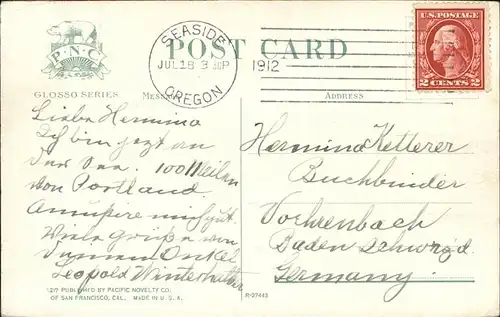 P·N·C
SEASIDE
JUL 18 3 30P
OREGON
1912
POST CARD
U.S. POSTAGE
2 CENTS 2
GLOSSO SERIES. MESSAGE ADDRESS
Liebe Hermina
Ich bin jezt an
der See. 100 Meilen
von Portland.
Amüsere mich gut
Viele grüße von
Deinem Onkel
Leopold Winterhalter
Hermina Ketterer
Buchbinder
Voehrenbach
Baden Schwrz'd
Germany.
PUBLISHED BY PACIFIC NOVELTY CO.
OF SAN FRANCISCO, CAL. MADE IN U. S. A.
R-27443